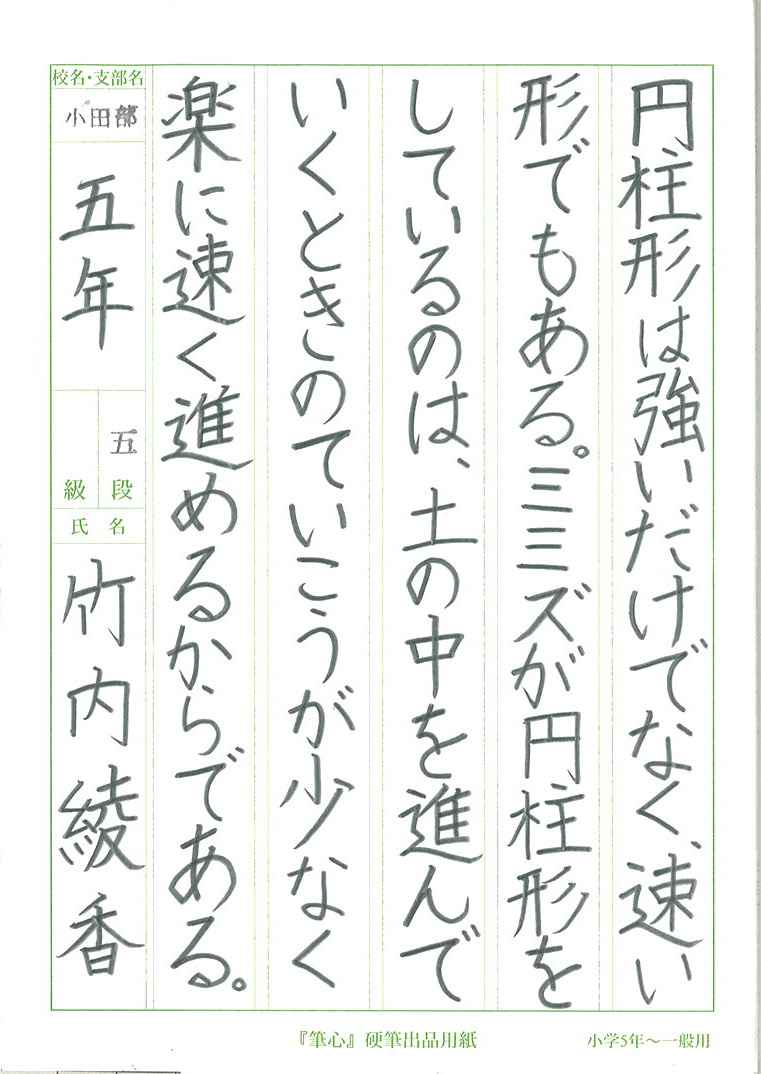 円柱形は強いだけでなく、速い
形でもある。ミミズが円柱形を
しているのは、土の中を進んで
いくときのていこうが少なく
楽に速く進めるからである。
校名・支部名
小田部
五年
五段
級
氏名
竹内綾香
『筆心』硬筆出品用紙
小学5年〜一般用